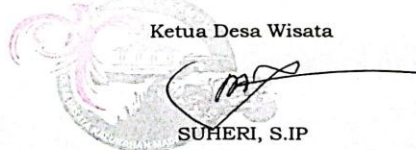 Ketua Desa Wisata
SUHERI, S.IP